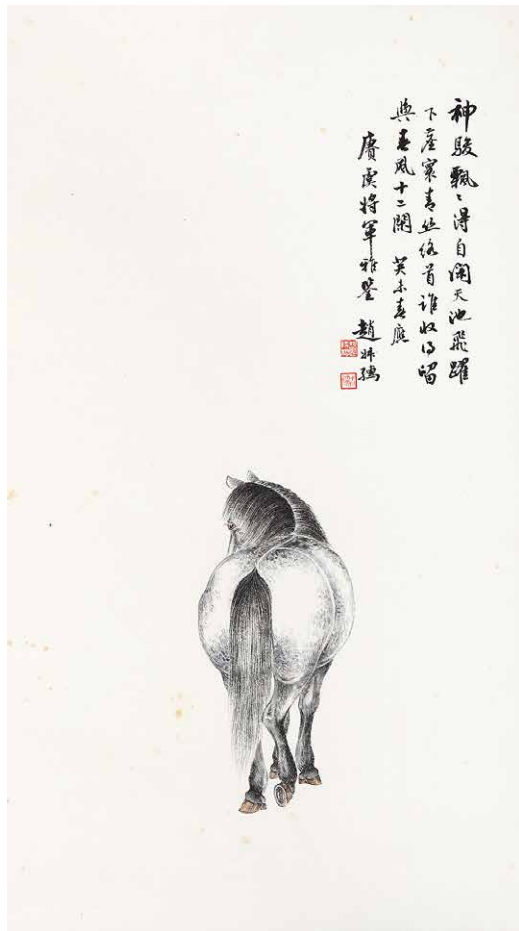 神駿飄飄得自閑天池飛躍
下塵寰青絲絡首誰收得留
與春風十二閑 癸未春應
賡虞將軍雅鑒 趙叔孺